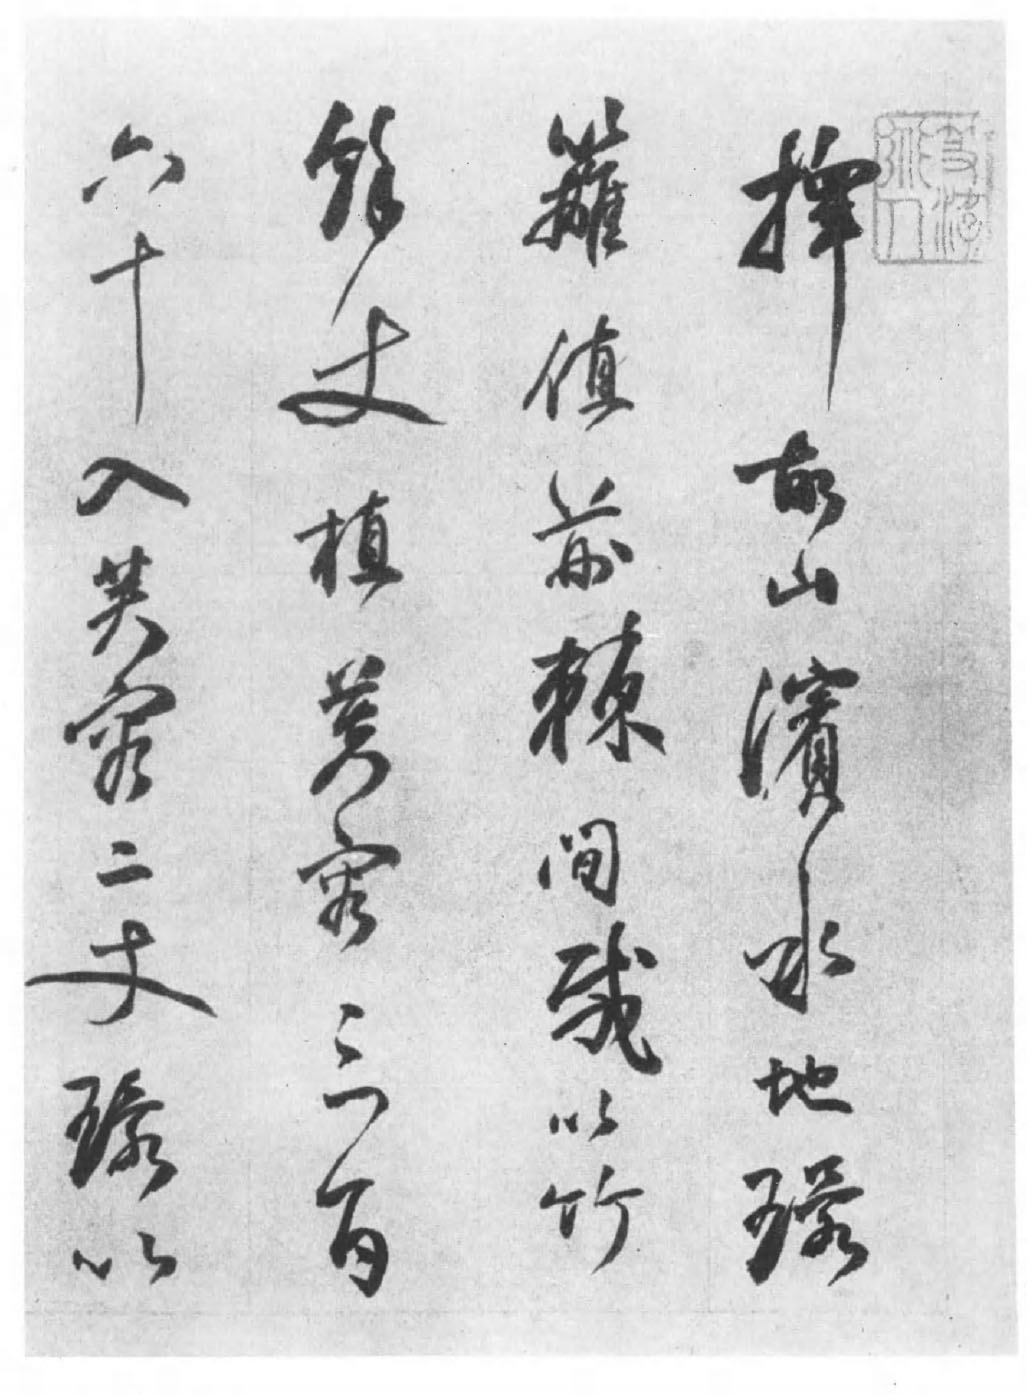 擇故山濱水地環
籬植荊棘間栽以竹
餘丈植芙蓉三百
六十入芙蓉二丈環以